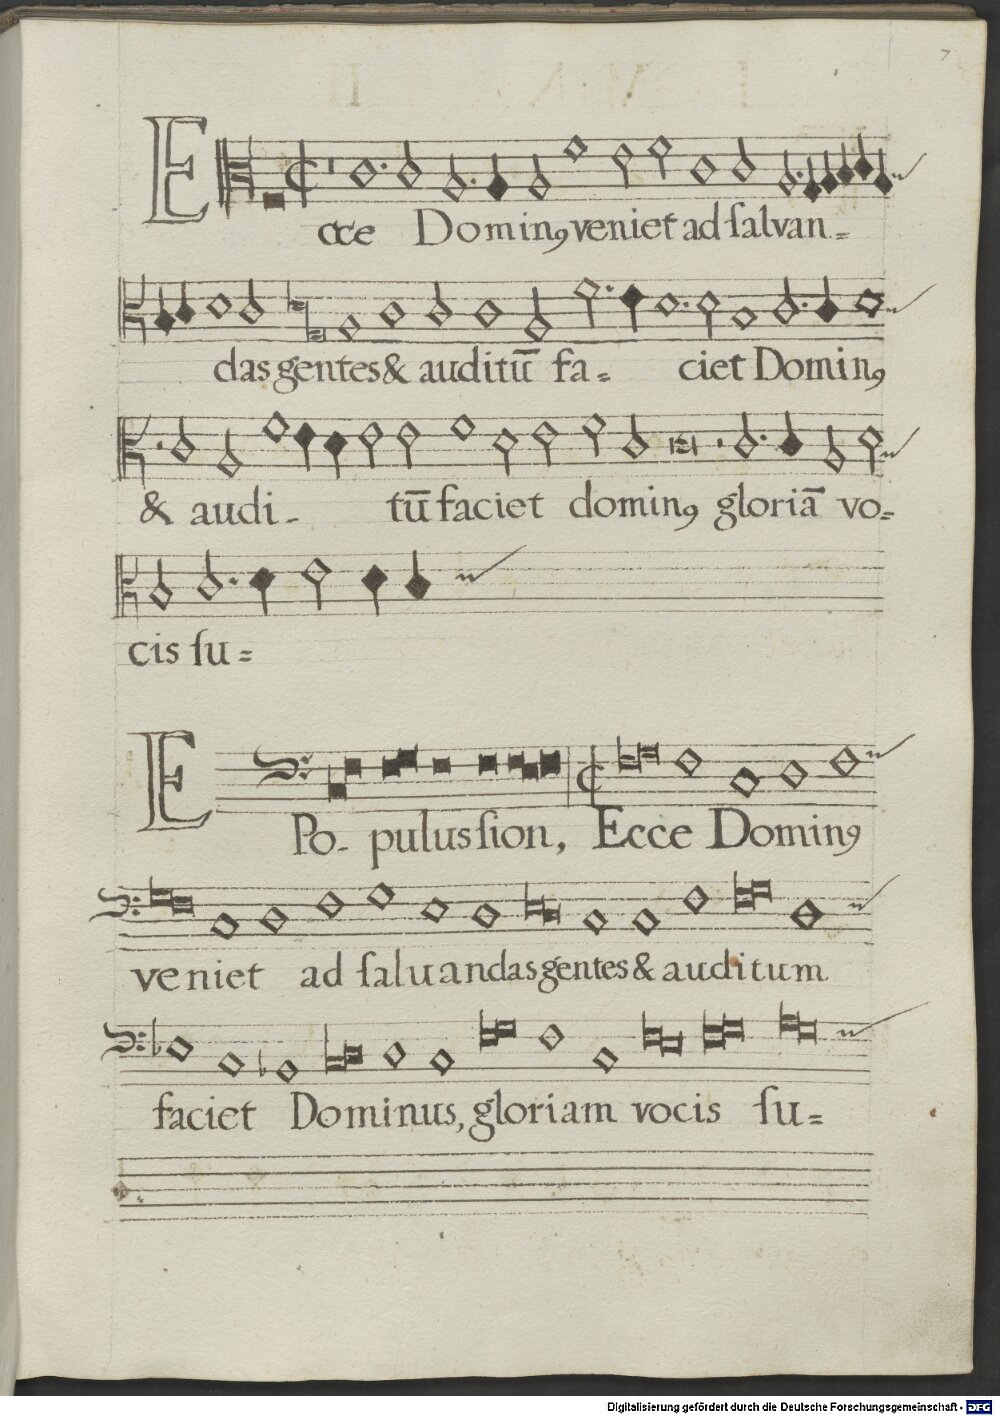 7
Ecce Dominꝯ veniet ad ſalvan=
das gentes & auditū fa= ciet Dominꝯ
& audi- tū faciet dominꝯ gloriā vo=
cis ſu=
E Po- pulus ſion, Ecce Dominꝯ
veniet ad ſaluandas gentes & auditum
faciet Dominus, gloriam vocis ſu=
Digitalisierung gefördert durch die Deutsche Forschungsgemeinschaft - DFG